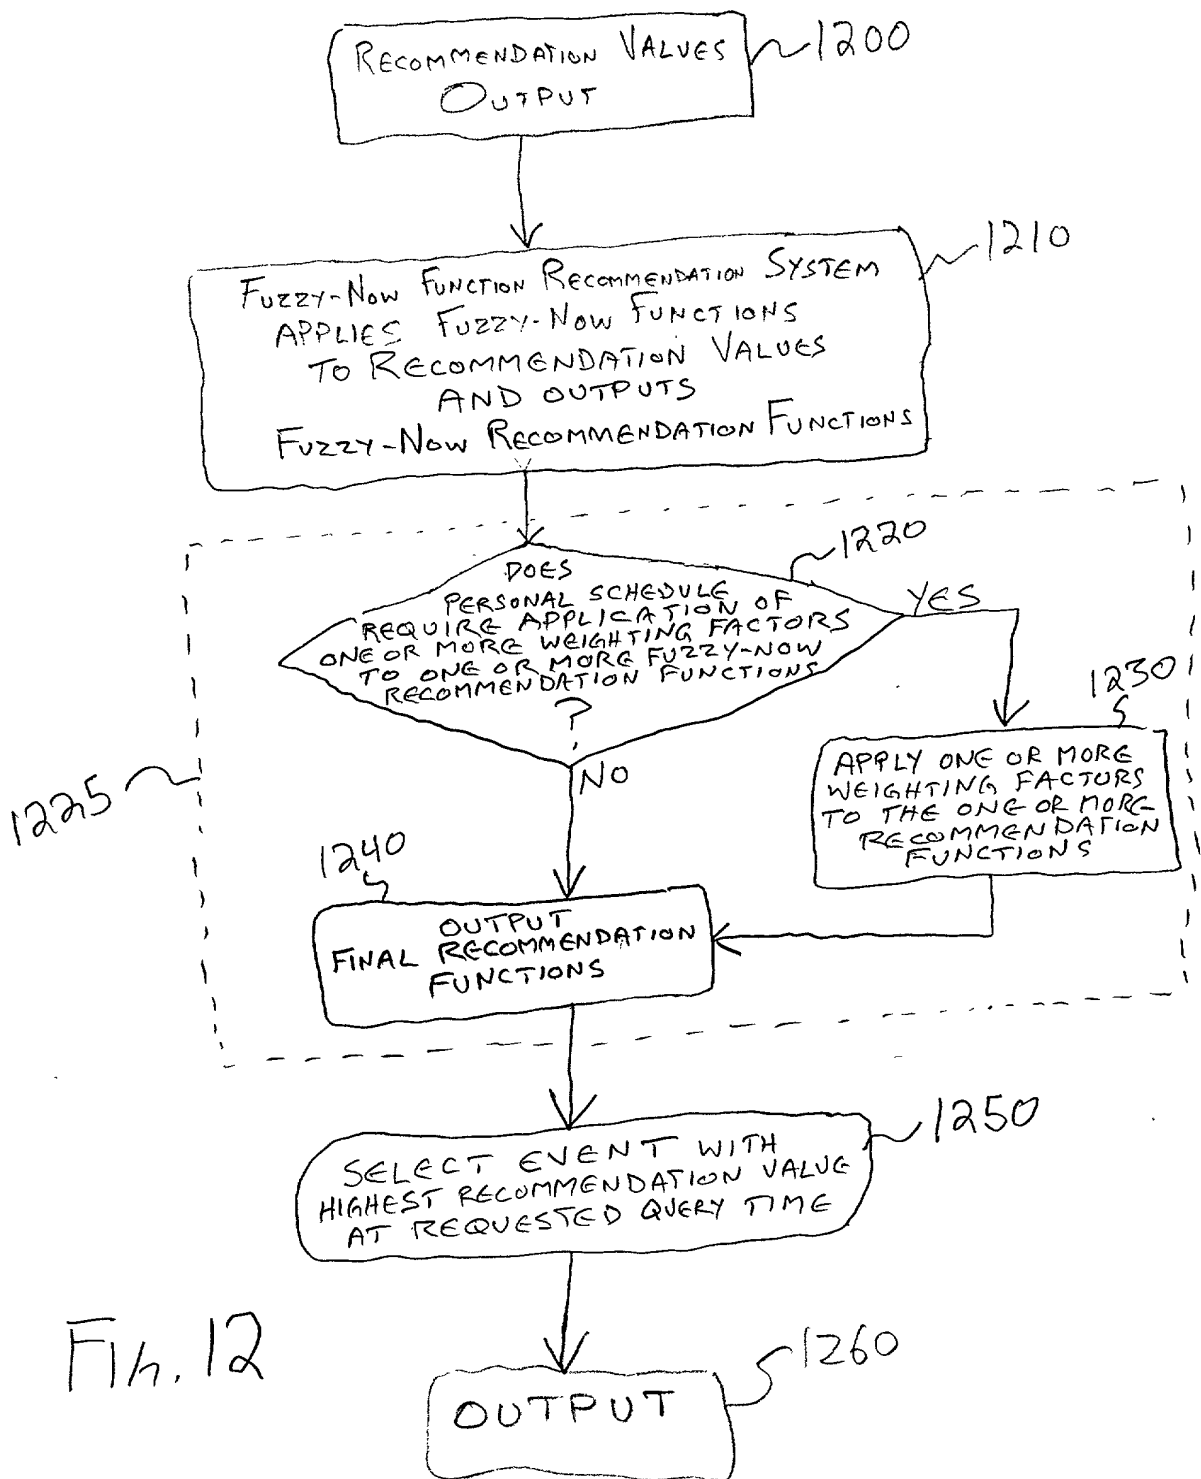 RECOMMENDATION VALUES
OUTPUT
1200
FUZZY-NOW FUNCTION RECOMMENDATION SYSTEM
APPLIES FUZZY-NOW FUNCTIONS
TO RECOMMENDATION VALUES
AND OUTPUTS
FUZZY-NOW RECOMMENDATION FUNCTIONS
1210
DOES
PERSONAL SCHEDULE
REQUIRE APPLICATION OF
ONE OR MORE WEIGHTING FACTORS
TO ONE OR MORE FUZZY-NOW
RECOMMENDATION FUNCTIONS
?
1220
YES
NO
1230
APPLY ONE OR MORE
WEIGHTING FACTORS
TO THE ONE OR MORE
RECOMMENDATION
FUNCTIONS
1225
1240
OUTPUT
FINAL RECOMMENDATION
FUNCTIONS
SELECT EVENT WITH
HIGHEST RECOMMENDATION VALUE
AT REQUESTED QUERY TIME
1250
OUTPUT
1260
FIG. 12